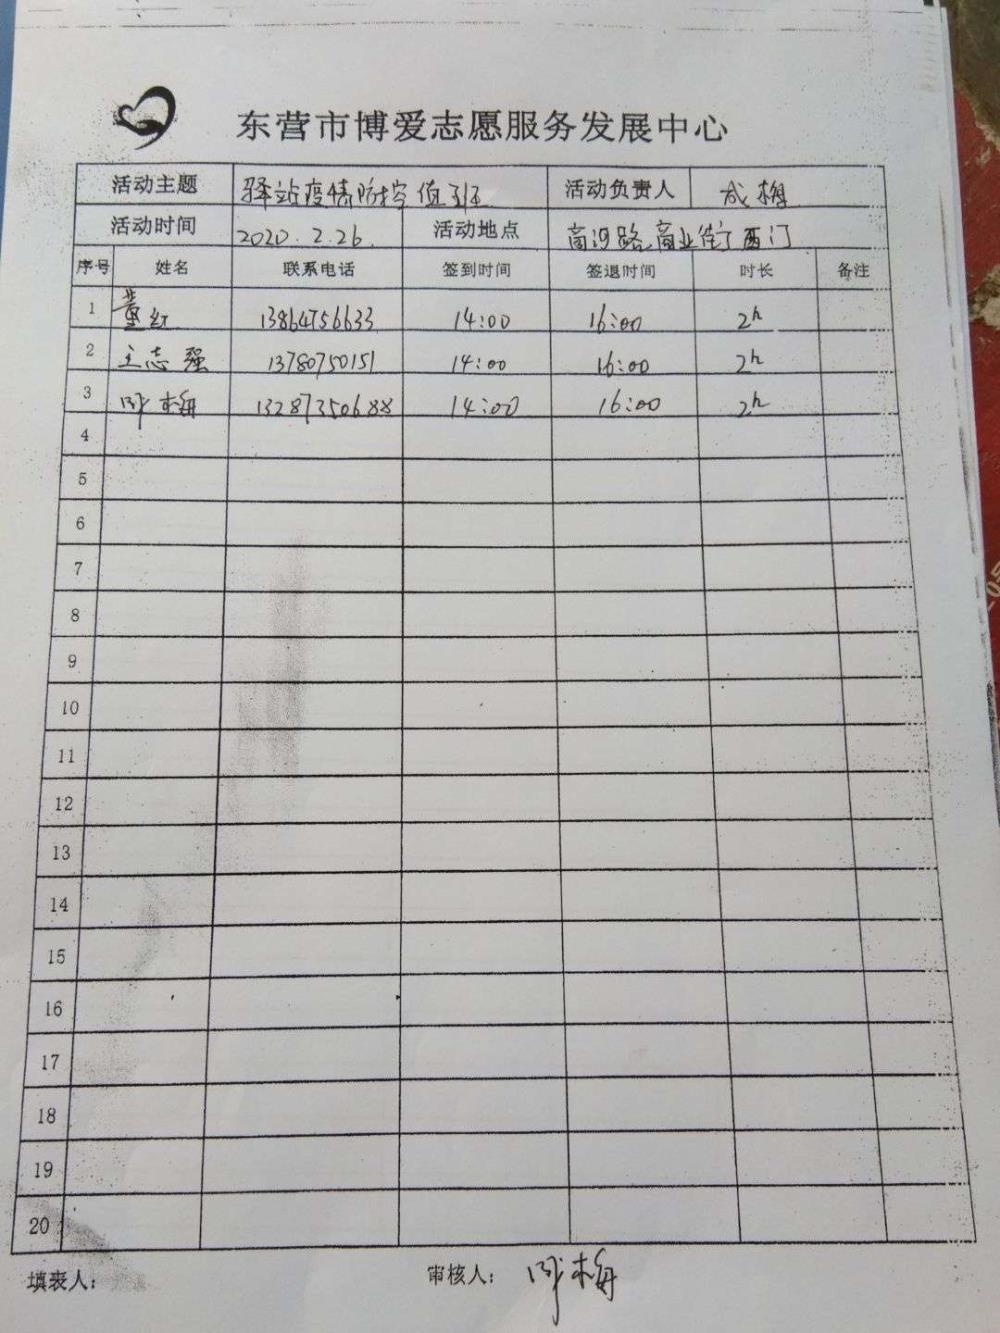 东营市博爱志愿服务发展中心
活动主题 驿站疫情防控值班 活动负责人 成梅
活动时间 2020.2.26. 活动地点 商河路商业街西门
序号 姓名 联系电话 签到时间 签退时间 时长 备注
1 董红 13864756633 14:00 16:00 2h
2 王志强 13780750151 14:00 16:00 2h
3 成梅 13287350688 14:00 16:00 2h
4
5
6
7
8
9
10
11
12
13
14
15
16
17
18
19
20
填表人： 审核人： 成梅